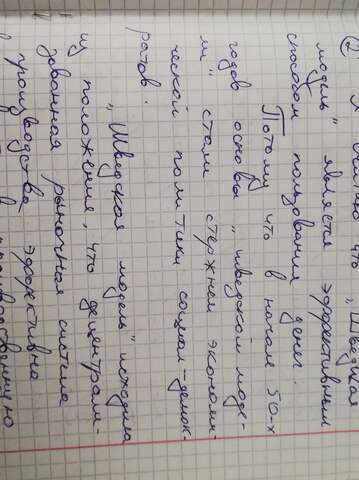 ② что „Шведская
модель" является эффективным
способом пользования денег.
Потому что в начале 50-х
годов основы „шведской моде-
ли" стали стержнем экономи-
ческой политики социал-демок-
ратов.
„Шведская модель" исходила
из положения, что децентрали-
зованная рыночная система
производства эффективна